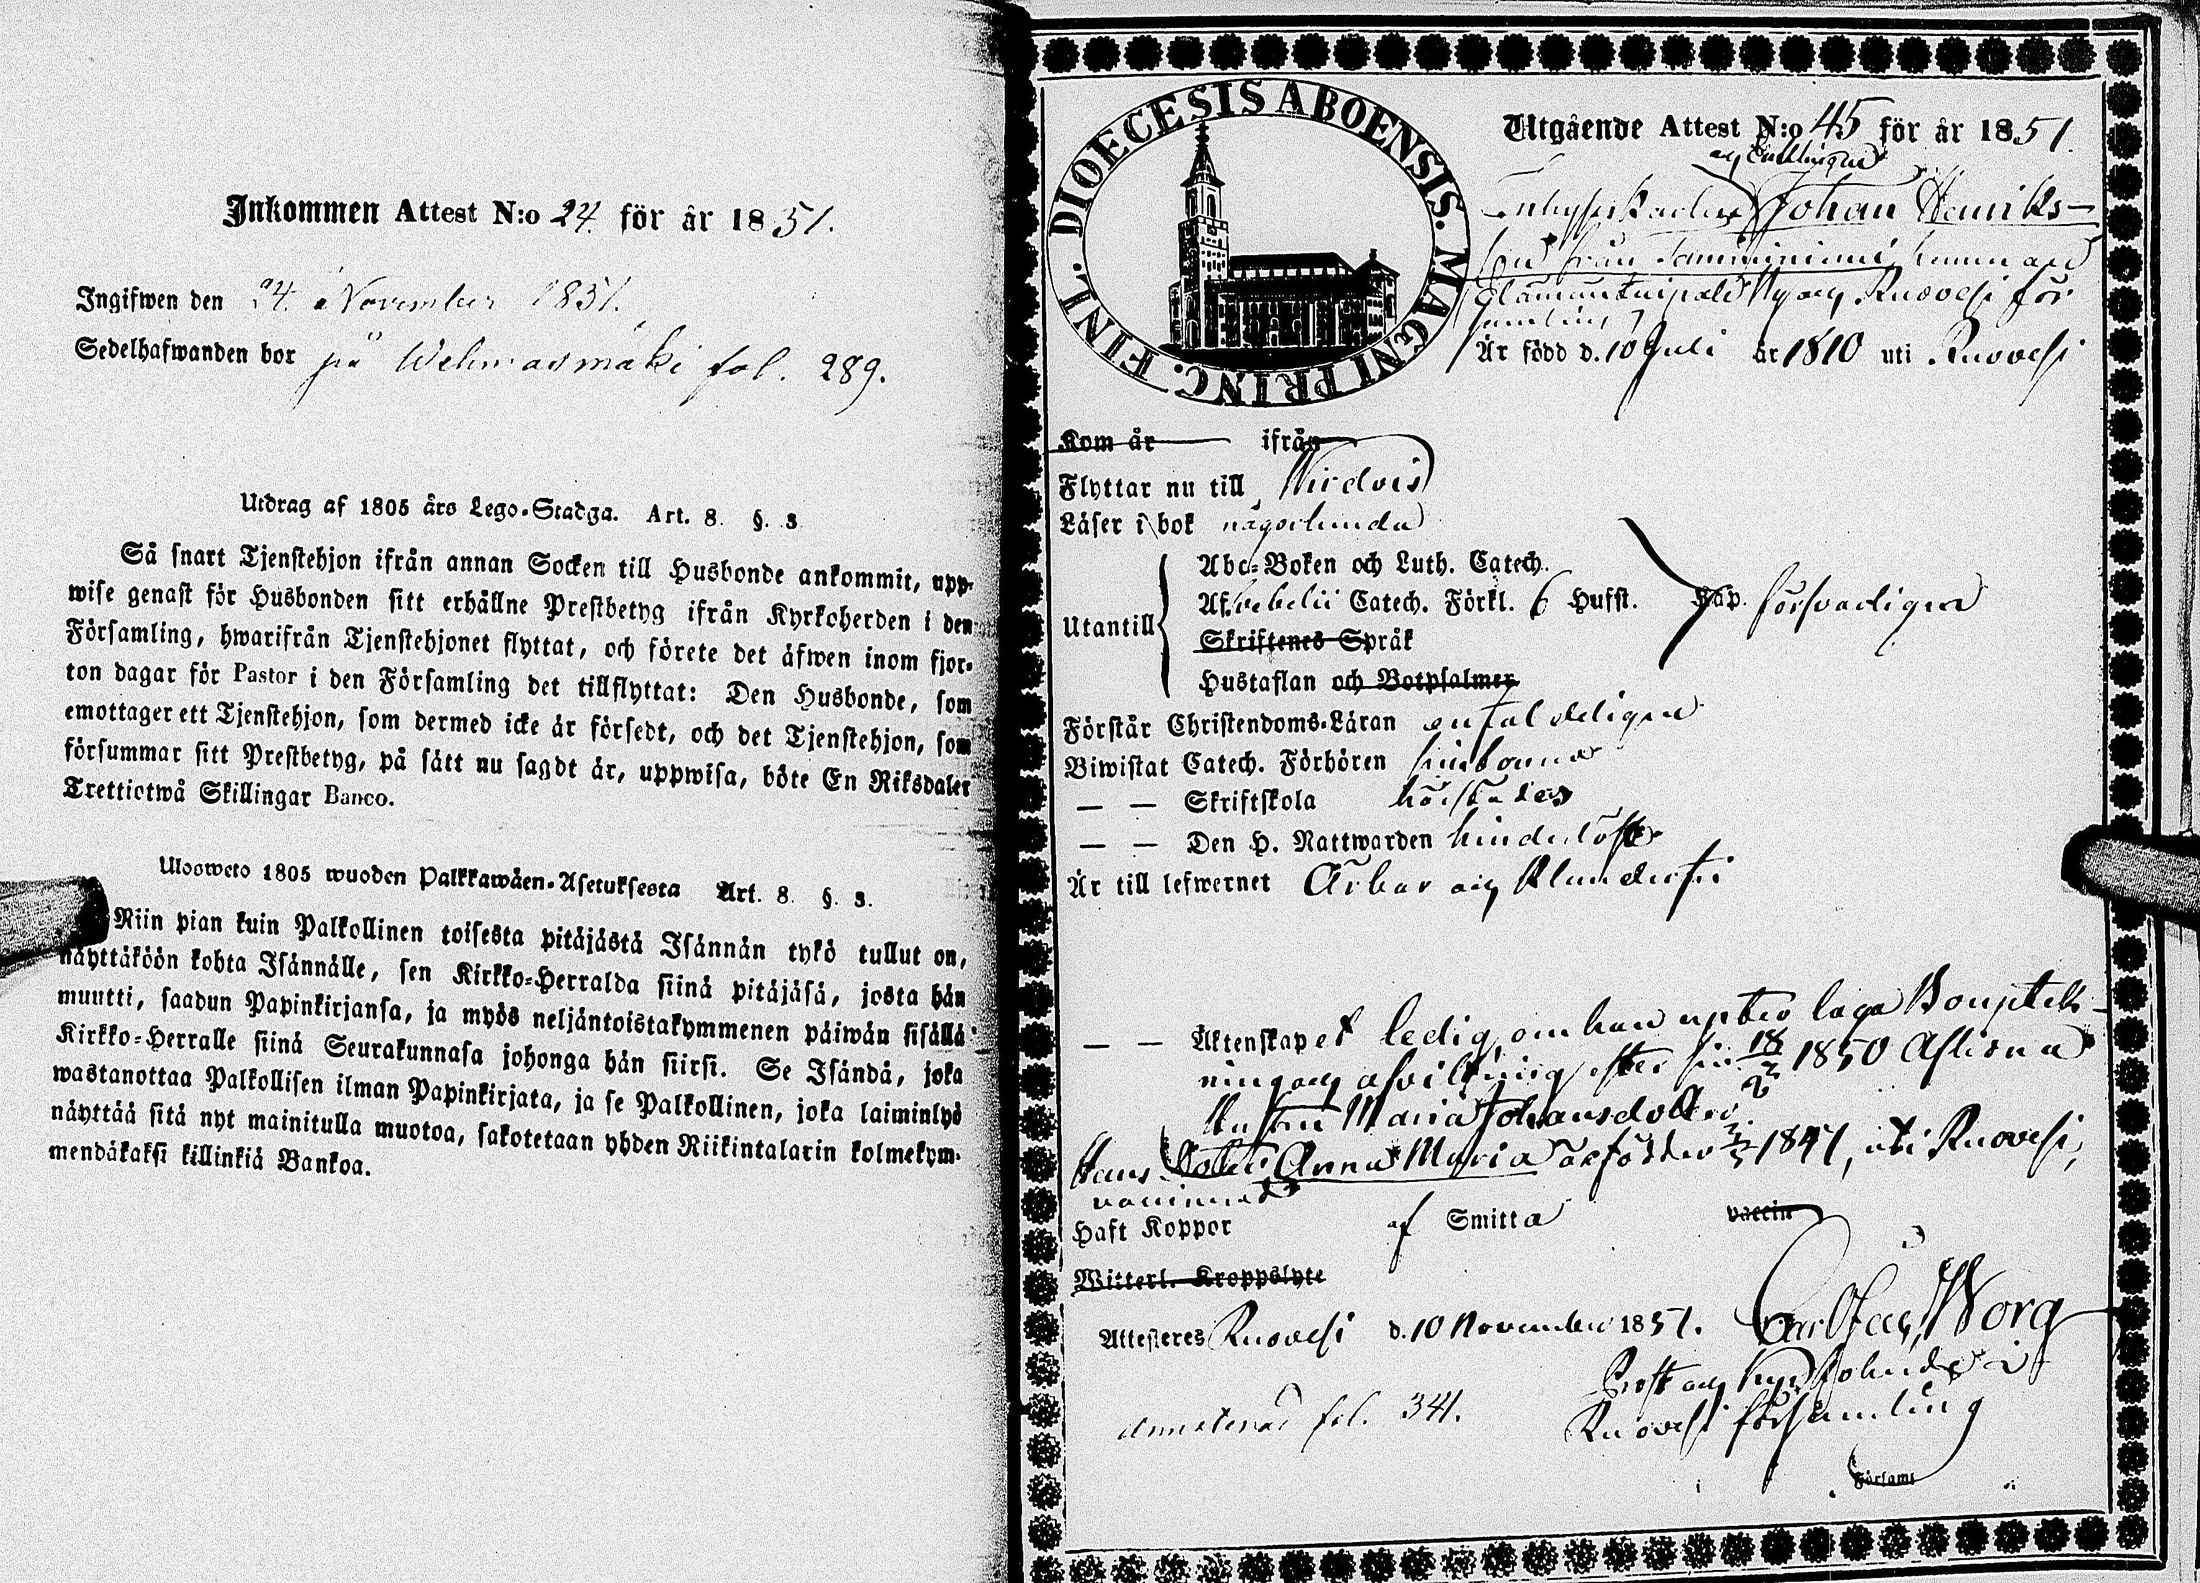 Inkommen Attest N:o 24. för år 1851.
Ingifwen den 24. November 1851.
Sedelhafwanden bor på Wehmasmäki fol. 289.
Utdrag af 1805 års Lego-Stadga. Art. 8. §. 3
Så snart Tjenstehjon ifrån annan Socken till Husbonde ankommit, upp-
wise genast för Husbonden sitt erhållne Prestbetyg ifrån Kyrkoherden i den
Församling, hwarifrån Tjenstehjonet flyttat, och förete det äfwen inom fjor-
ton dagar för Pastor i den Församling det tillflyttat: Den Husbonde, som
emottager ett Tjenstehjon, som dermed icke är försedt, och det Tjenstehjon, som
försummar sitt Prestbetyg, på sätt nu sagdt är, uppwisa, böte En Riksdaler
Trettiotwå Skillingar Banco.
Ulosweto 1805 wuoden Palkkawäen-Asetuksesta Art. 8. §. 3.
Niin pian kuin Palkollinen toisesta pitäjästä Isännän tykö tullut on,
näyttäköön kohta Isännälle, sen Kirkko-Herralda siinä pitäjäsä, josta hän
muutti, saadun Papinkirjansa, ja myös neljäntoistakymmenen päiwän sisällä
Kirkko-Herralle siinä Seurakunnasa johonga hän siirsi. Se Isändä, joka
wastanottaa Palkollisen ilman Papinkirjata, ja se Palkollinen, joka laiminlyö
näyttää sitä nyt mainitulla muotoa, sakotetaan yhden Riikintalarin kolmekym-
mendäkaksi killinkiä Bankoa.
DIOECESIS ABOENSIS. MAGNI PRINC. FINL.
Utgående Attest N:o 45 för år 1851.
och Enklingen
Johan Henriks-
son från hemman
och Ruovesi för
samling
Är född d. 10 Juli år 1810 uti Ruovesi
Kom år ifrån
Flyttar nu till Wirdois
Läser i bok någorlunda
Utantill
Abc-Boken och Luth. Catech.
Af Svebelii Catech. Förkl. 6 Hufst. Kap. försvarligen
Skriftenes Språk
Hustaflan och Botpsalmer
Förstår Christendoms-Läran enfaldeligen
Biwistat Catech. Förhören
— — Skriftskola
— — Den H. Nattwarden
Är till lefwernet Ärbar och
— — Äktenskapet ledig, om han uptes laga Bouptek-
ning och afvittring efter sin 18/2 1850 Aflidna
Hustru Maria Johansdotter.
Hans Dotter Anna Maria är född 1847, uti Ruovesi,
vaccinerad
Haft Koppor af Smitta vaccin
Witterl. Kroppslyte
Attesteres Ruovesi d. 10 November 1851.
Prost och Kyrkoherde i
Ruovesi församling
fol. 341.
Församl